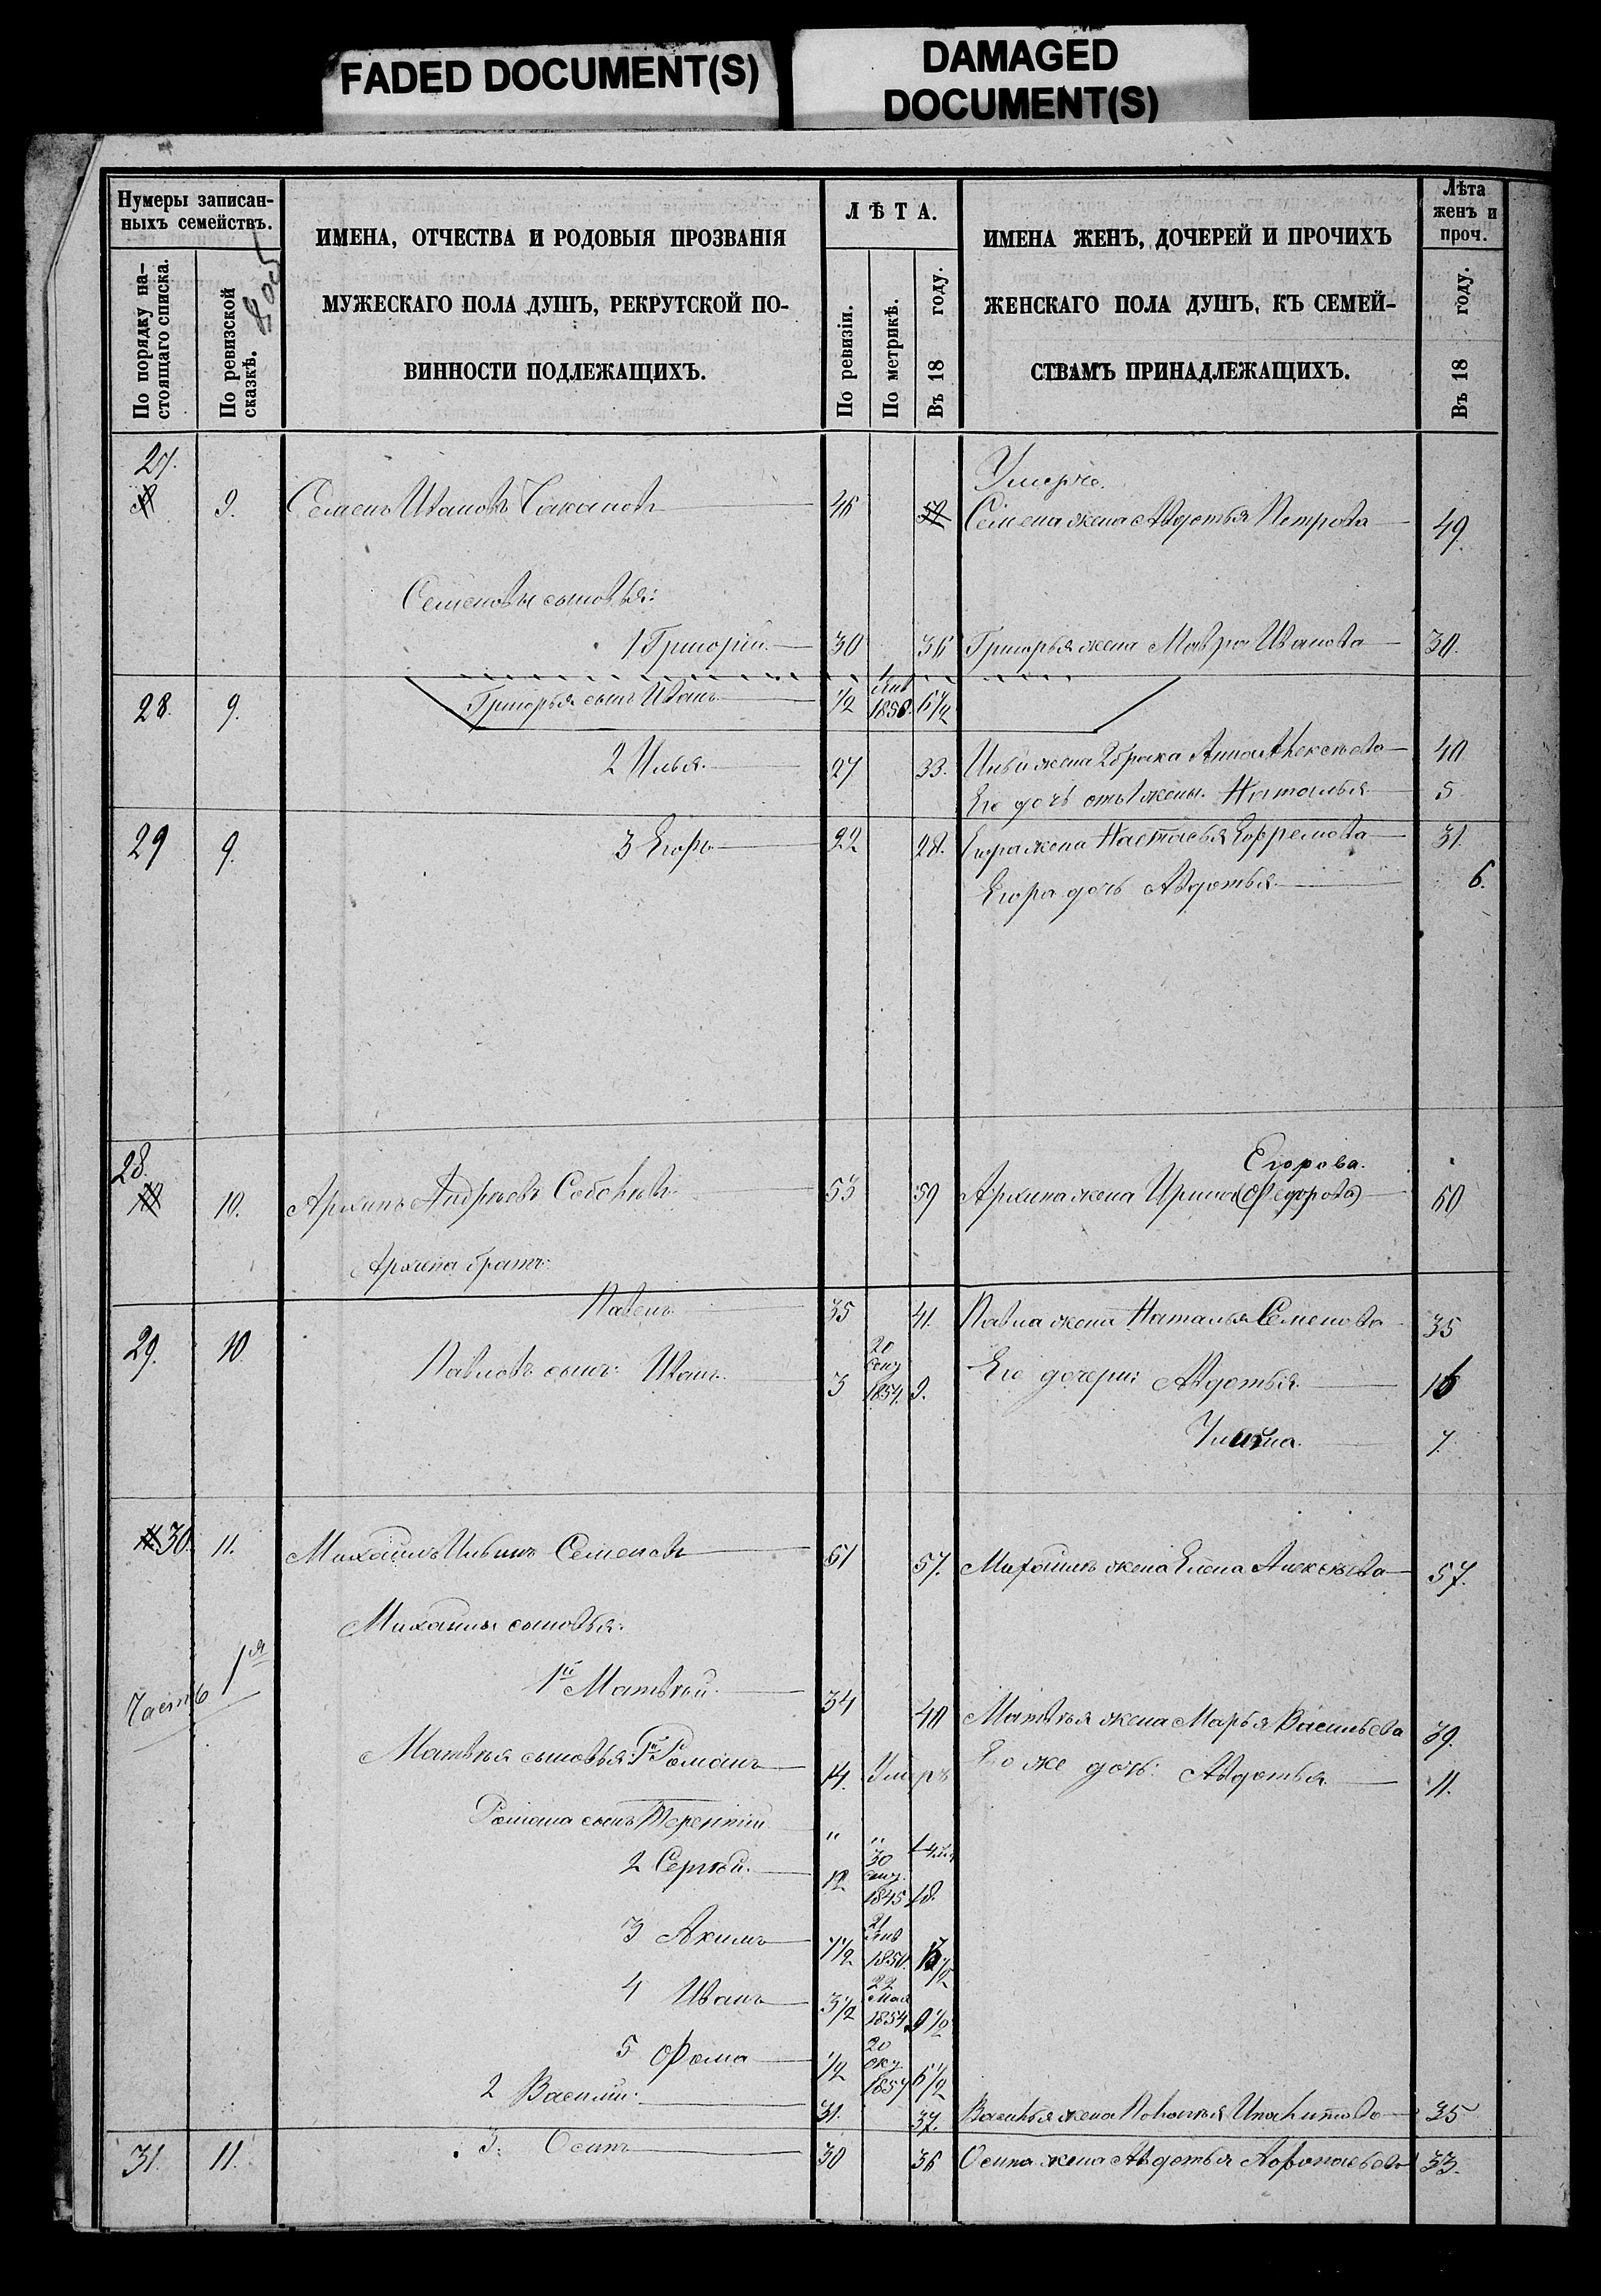 FADED DOCUMENT(S)
DAMAGED
DOCUMENT(S)
Нумеры записан-
ныхъ семействъ.
По порядку на-
стоящаго списка.
По ревизской
сказкѣ.
ИМЕНА, ОТЧЕСТВА И РОДОВЫЯ ПРОЗВАНІЯ
МУЖЕСКАГО ПОЛА ДУШЪ, РЕКРУТСКОЙ ПО-
ВИННОСТИ ПОДЛЕЖАЩИХЪ.
ЛѢТА.
По ревизіи.
По метрикѣ.
Въ 18 году.
ИМЕНА ЖЕНЪ, ДОЧЕРЕЙ И ПРОЧИХЪ
ЖЕНСКАГО ПОЛА ДУШЪ, КЪ СЕМЕЙ-
СТВАМЪ ПРИНАДЛЕЖАЩИХЪ.
Лѣта
женъ и
проч.
Въ 18 году.
27.
9. Семенъ Ивановъ 46 52 Семена жена Авдотья Петрова 49.
Семеновы сыновья:
1 Григорій 30 36 Григорья жена Мавра Иванова 30.
28. 9. Григорья сынъ Иванъ 1/2 Янв 1858. 6 1/2
2 Илья 27 33. Ильи жена 2 брака Анна Алексѣева 40
Его дочь отъ 1 жены Наталья 5
29 9. 3 Егоръ 22 28. Егора жена Настасья Ефремова 31.
Егора дочь Авдотья 6.
28.
Егорова.
10. Архипъ Андрѣевъ 53 59 Архипа жена Ирина (Федорова) 60
Архипа братъ:
Павелъ 35 41. Павла жена Наталья Семенова 35
29. 10 Павловъ сынъ: Иванъ 3 20 Сент 1854. 9. Его дочери: Авдотья 16
7.
30. 11. Михаилъ Ильинъ Семеновъ 51 57. Михаила жена Елена Алексѣева 57.
Михаилы сыновья:
Часть 1я
1й Матвѣй 34 40 Матвѣя жена Марья Васильева 39.
Матвѣя сыновья: 1й Романъ 14. Умеръ Его же дочь: Авдотья 11.
Романа сынъ Терентій " "
2 Сергѣй 12 30 сент. 1845 18.
3 Акимъ 7 1/2 21 Янв 1850. 13 1/2
4 Иванъ 3 1/2 22 Мая 1854 9 1/2
5 Фома 1/2 20 окт 1857 6 1/2
2 Василій 31. 37. Василья жена Пелагея 35
31. 11. 3. Осипъ 30 36 Осипа жена Авдотья Афонасьева 33.